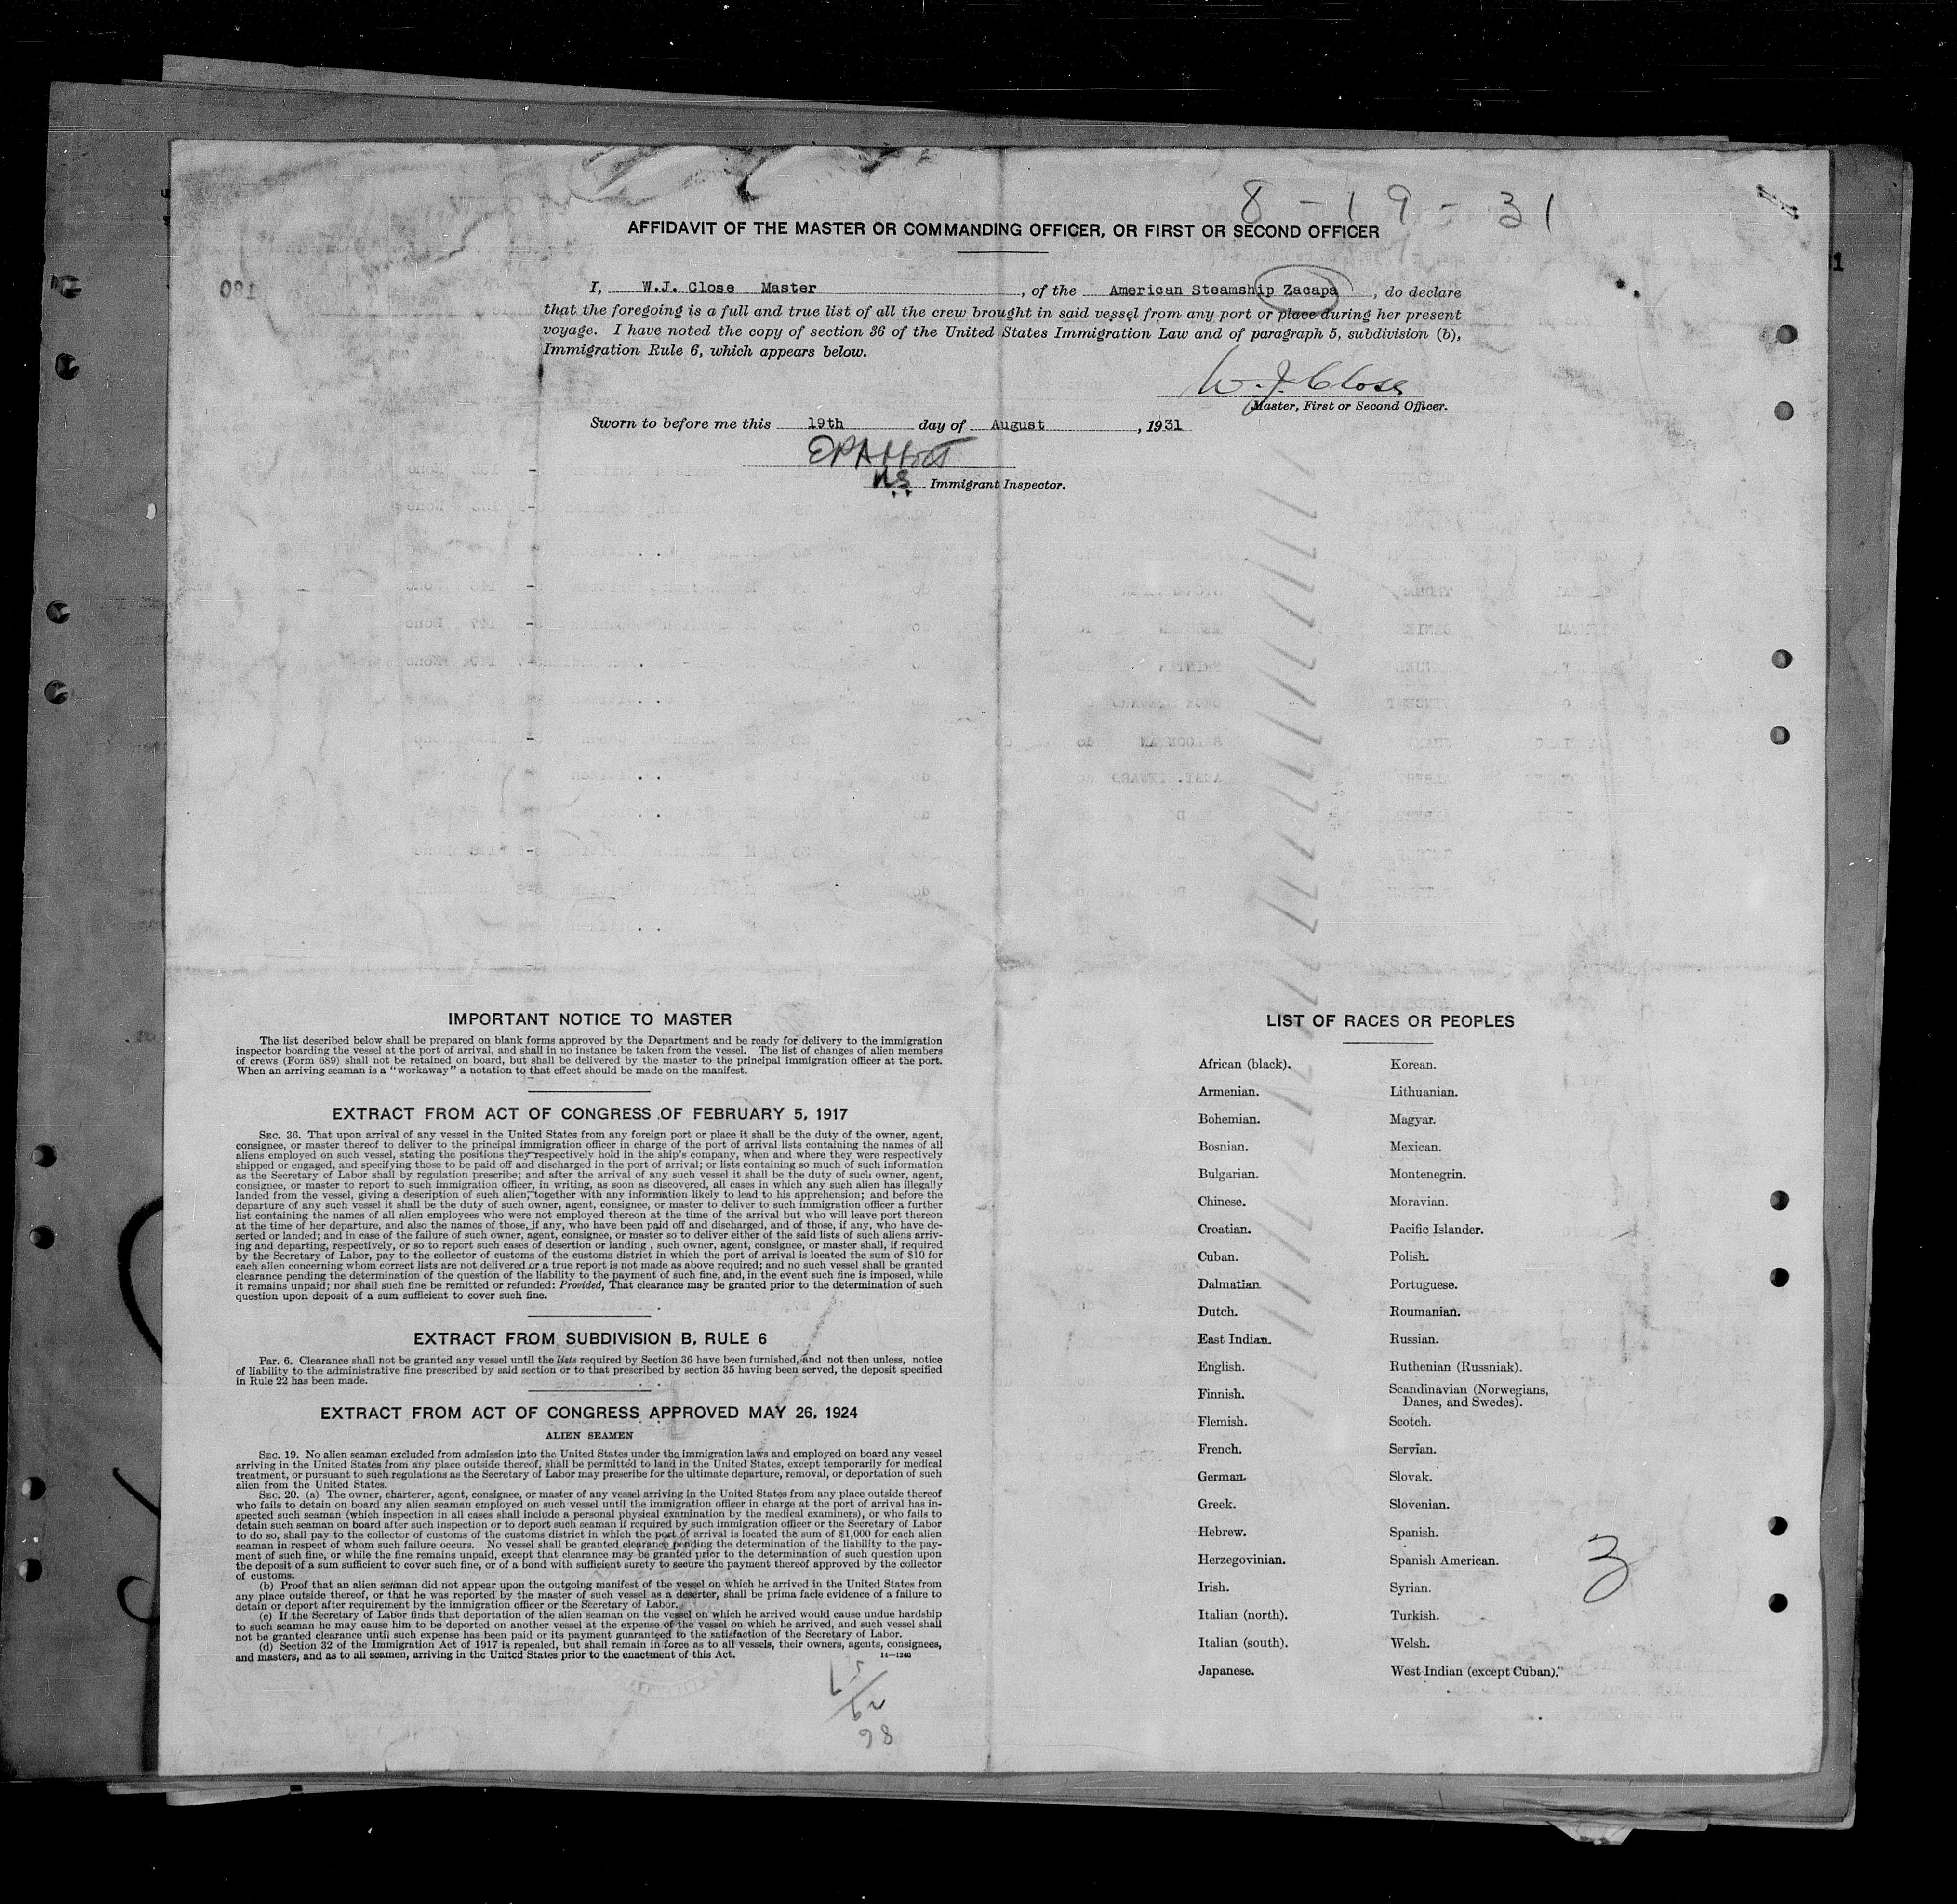 8 - 19 - 31
AFFIDAVIT OF THE MASTER OR COMMANDING OFFICER, OR FIRST OR SECOND OFFICER
I, W.J. Close Master, of the American Steamship Zacapa, do declare
that the foregoing is a full and true list of all the crew brought in said vessel from any port or place during her present
voyage. I have noted the copy of section 36 of the United States Immigration Law and of paragraph 5, subdivision (b),
Immigration Rule 6, which appears below.
W. J. Close
Master, First or Second Officer.
Sworn to before me this 19th day of August, 1931
Immigrant Inspector.
IMPORTANT NOTICE TO MASTER
The list described below shall be prepared on blank forms approved by the Department and be ready for delivery to the immigration
inspector boarding the vessel at the port of arrival, and shall in no instance be taken from the vessel. The list of changes of alien members
of crews (Form 689) shall not be retained on board, but shall be delivered by the master to the principal immigration officer at the port.
When an arriving seaman is a "workaway" a notation to that effect should be made on the manifest.
EXTRACT FROM ACT OF CONGRESS OF FEBRUARY 5, 1917
SEC. 36. That upon arrival of any vessel in the United States from any foreign port or place it shall be the duty of the owner, agent,
consignee, or master thereof to deliver to the principal immigration officer in charge of the port of arrival lists containing the names of all
aliens employed on such vessel, stating the positions they respectively hold in the ship's company, when and where they were respectively
shipped or engaged, and specifying those to be paid off and discharged in the port of arrival; or lists containing so much of such information
as the Secretary of Labor shall by regulation prescribe; and after the arrival of any such vessel it shall be the duty of such owner, agent,
consignee, or master to report to such immigration officer, in writing, as soon as discovered, all cases in which any such alien has illegally
landed from the vessel, giving a description of such alien, together with any information likely to lead to his apprehension; and before the
departure of any such vessel it shall be the duty of such owner, agent, consignee, or master to deliver to such immigration officer a further
list containing the names of all alien employees who were not employed thereon at the time of the arrival but who will leave port thereon
at the time of her departure, and also the names of those, if any, who have been paid off and discharged, and of those, if any, who have de-
serted or landed; and in case of the failure of such owner, agent, consignee, or master so to deliver either of the said lists of such aliens arriv-
ing and departing, respectively, or so to report such cases of desertion or landing , such owner, agent, consignee, or master shall, if required
by the Secretary of Labor, pay to the collector of customs of the customs district in which the port of arrival is located the sum of $10 for
each alien concerning whom correct lists are not delivered or a true report is not made as above required; and no such vessel shall be granted
clearance pending the determination of the question of the liability to the payment of such fine, and, in the event such fine is imposed, while
it remains unpaid; nor shall such fine be remitted or refunded: Provided, That clearance may be granted prior to the determination of such
question upon deposit of a sum sufficient to cover such fine.
EXTRACT FROM SUBDIVISION B, RULE 6
Par. 6. Clearance shall not be granted any vessel until the lists required by Section 36 have been furnished, and not then unless, notice
of liability to the administrative fine prescribed by said section or to that prescribed by section 35 having been served, the deposit specified
in Rule 22 has been made.
EXTRACT FROM ACT OF CONGRESS APPROVED MAY 26, 1924
ALIEN SEAMEN
SEC. 19. No alien seaman excluded from admission into the United States under the immigration laws and employed on board any vessel
arriving in the United States from any place outside thereof, shall be permitted to land in the United States, except temporarily for medical
treatment, or pursuant to such regulations as the Secretary of Labor may prescribe for the ultimate departure, removal, or deportation of such
alien from the United States.
SEC. 20. (a) The owner, charterer, agent, consignee, or master of any vessel arriving in the United States from any place outside thereof
who fails to detain on board any alien seaman employed on such vessel until the immigration officer in charge at the port of arrival has in-
spected such seaman (which inspection in all cases shall include a personal physical examination by the medical examiners), or who fails to
detain such seaman on board after such inspection or to deport such seaman if required by such immigration officer or the Secretary of Labor
to do so, shall pay to the collector of customs of the customs district in which the port of arrival is located the sum of $1,000 for each alien
seaman in respect of whom such failure occurs. No vessel shall be granted clearance pending the determination of the liability to the pay-
ment of such fine, or while the fine remains unpaid, except that clearance may be granted prior to the determination of such question upon
the deposit of a sum sufficient to cover such fine, or of a bond with sufficient surety to secure the payment thereof approved by the collector
of customs.
(b) Proof that an alien seaman did not appear upon the outgoing manifest of the vessel on which he arrived in the United States from
any place outside thereof, or that he was reported by the master of such vessel as a deserter, shall be prima facie evidence of a failure to
detain or deport after requirement by the immigration officer or the Secretary of Labor.
(c) If the Secretary of Labor finds that deportation of the alien seaman on the vessel on which he arrived would cause undue hardship
to such seaman he may cause him to be deported on another vessel at the expense of the vessel on which he arrived, and such vessel shall
not be granted clearance until such expense has been paid or its payment guaranteed to the satisfaction of the Secretary of Labor.
(d) Section 32 of the Immigration Act of 1917 is repealed, but shall remain in force as to all vessels, their owners, agents, consignees,
and masters, and as to all seamen, arriving in the United States prior to the enactment of this Act.
14—1240
98
LIST OF RACES OR PEOPLES
African (black).
Armenian.
Bohemian.
Bosnian.
Bulgarian.
Chinese.
Croatian.
Cuban.
Dalmatian.
Dutch.
East Indian.
English.
Finnish.
Flemish.
French.
German.
Greek.
Hebrew.
Herzegovinian.
Irish.
Italian (north).
Italian (south).
Japanese.
Korean.
Lithuanian.
Magyar.
Mexican.
Montenegrin.
Moravian.
Pacific Islander.
Polish.
Portuguese.
Roumanian.
Russian.
Ruthenian (Russniak).
Scandinavian (Norwegians,
Danes, and Swedes).
Scotch.
Servian.
Slovak.
Slovenian.
Spanish.
Spanish American.
Syrian.
Turkish.
Welsh.
West Indian (except Cuban).
3